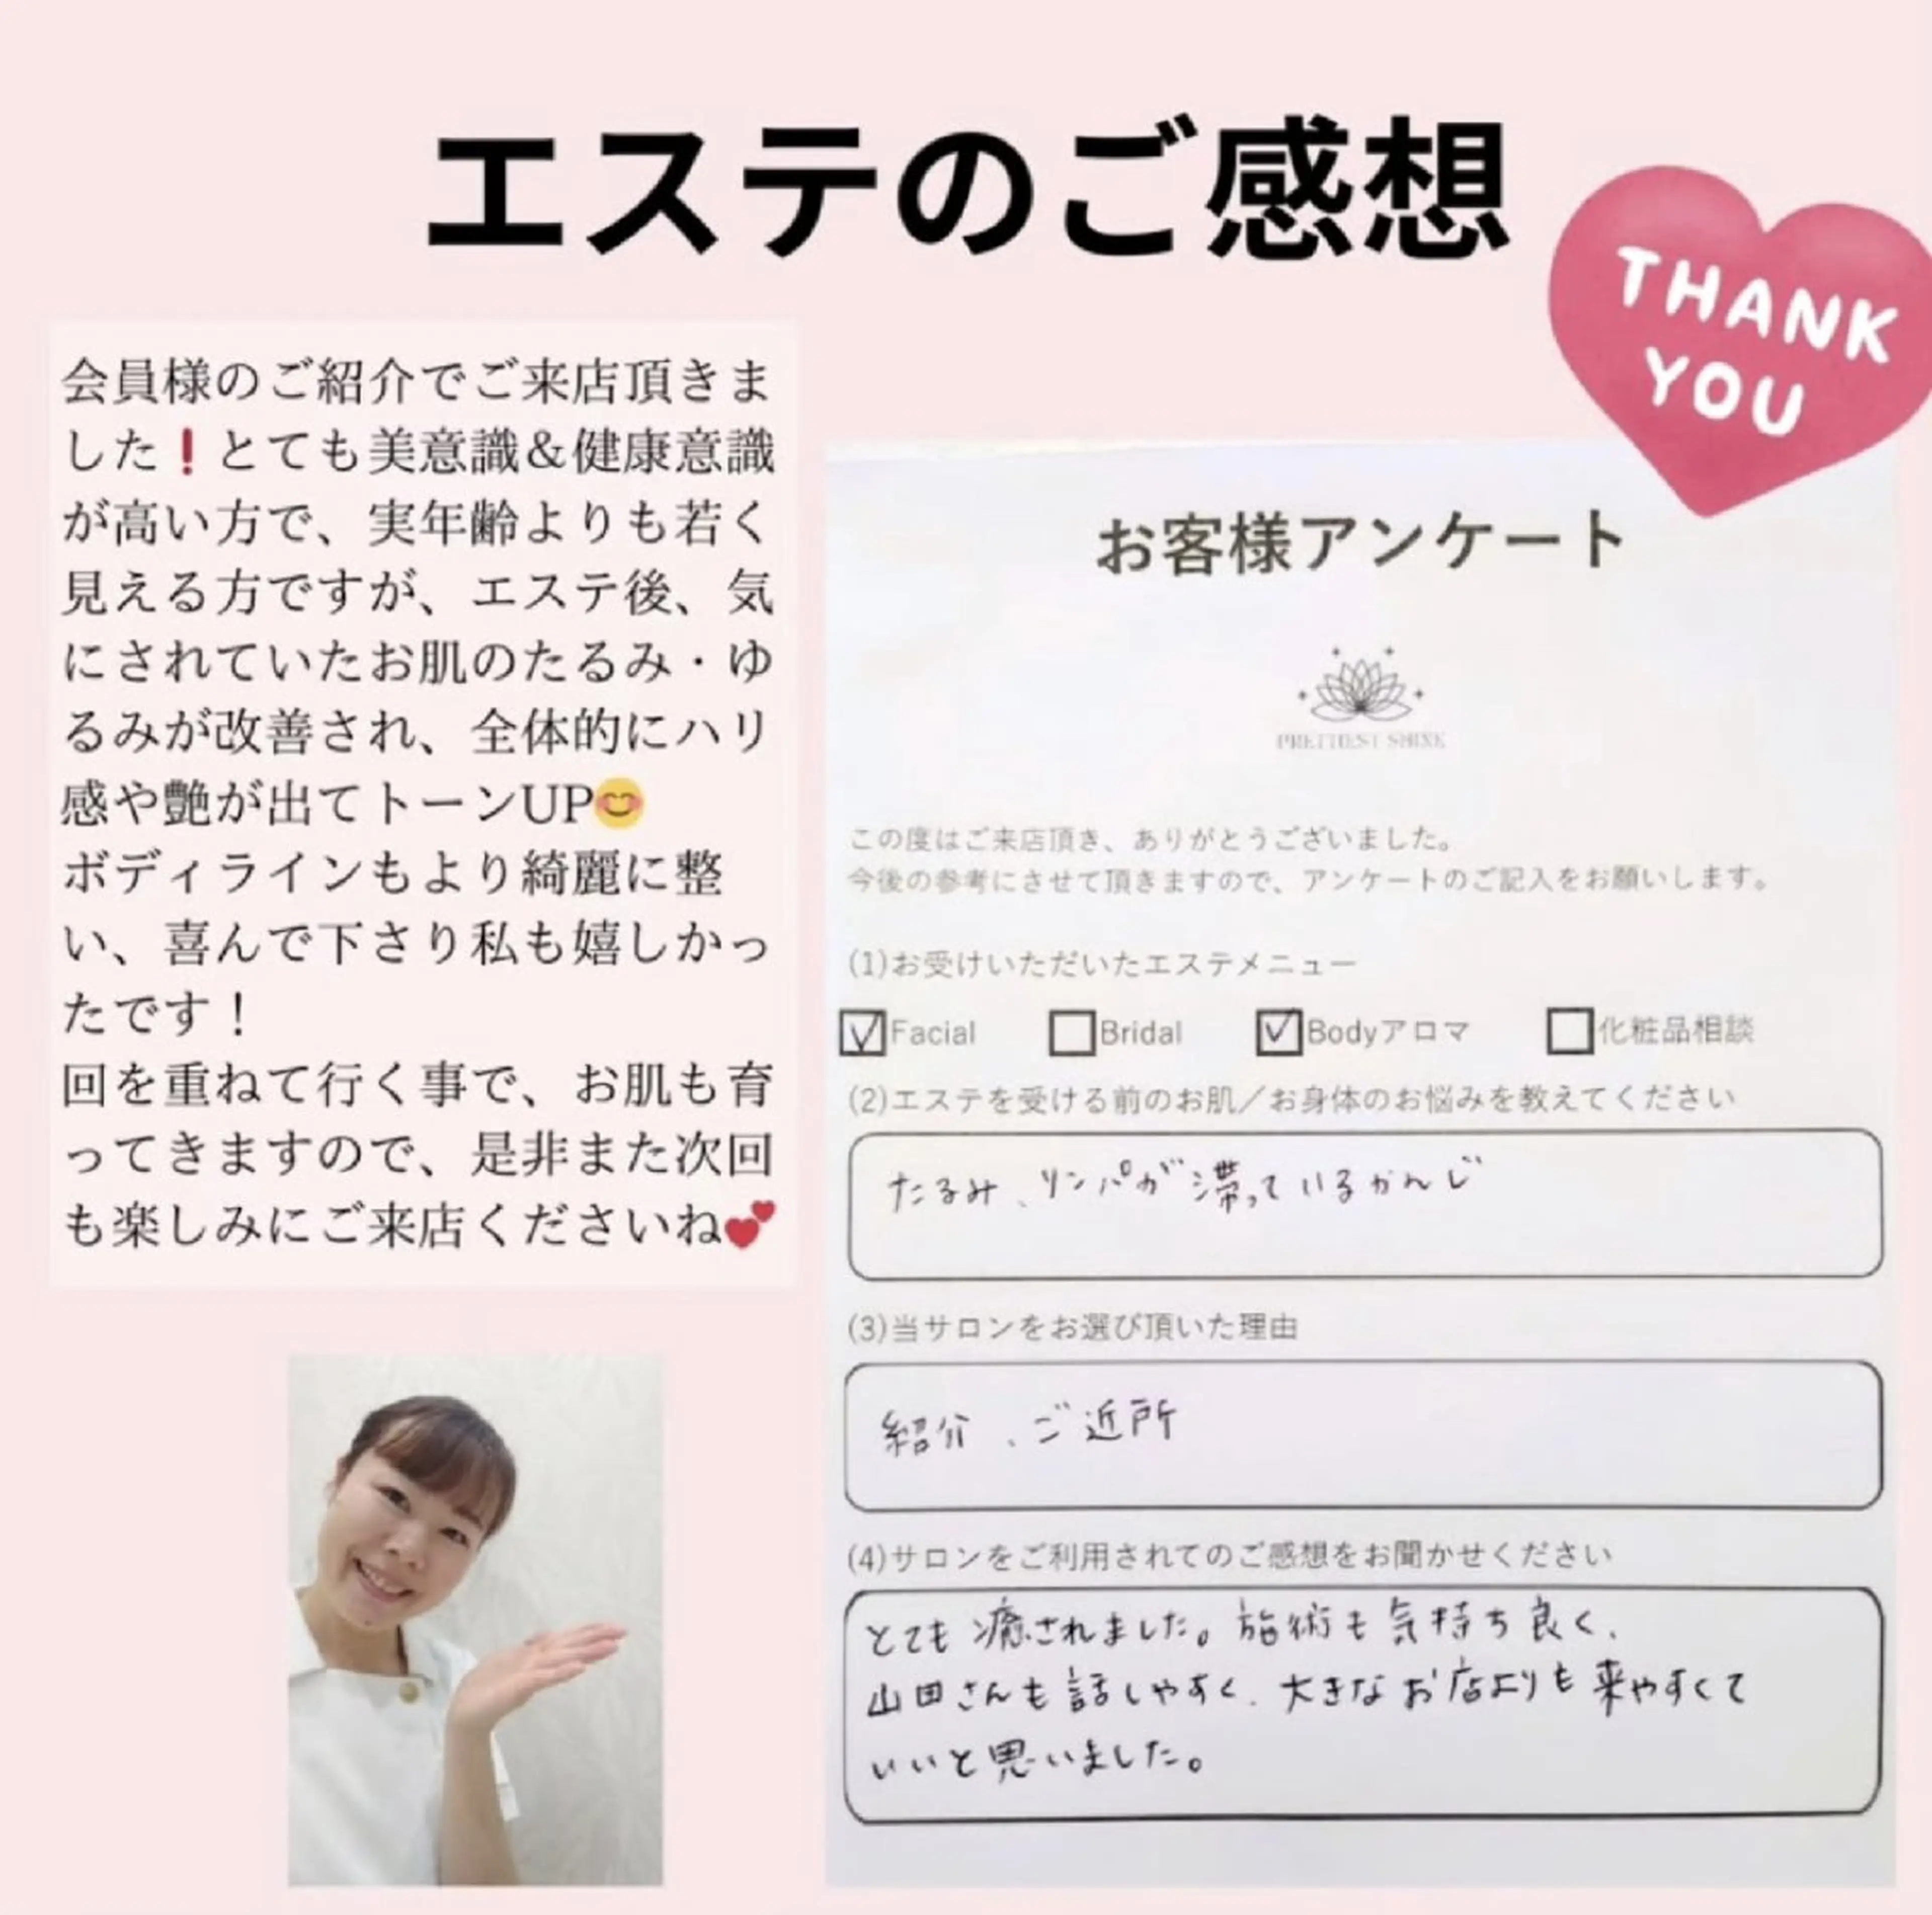 エステのご感想
THANK
YOU
会員様のご紹介でご来店頂きま
した❗とても美意識&健康意識
が高い方で、実年齢よりも若く
見える方ですが、エステ後、気
にされていたお肌のたるみ・ゆ
るみが改善され、全体的にハリ
感や艶が出てトーンUP😊
ボディラインもより綺麗に整
い、喜んで下さり私も嬉しかっ
たです！
回を重ねて行く事で、お肌も育
ってきますので、是非また次回
も楽しみにご来店くださいね💕
お客様アンケート
PRETTIEST SHINE
この度はご来店頂き、ありがとうございました。
今後の参考にさせて頂きますので、アンケートのご記入をお願いします。
(1)お受けいただいたエステメニュー
☑Facial ☐Bridal ☑Bodyアロマ ☐化粧品相談
(2)エステを受ける前のお肌／お身体のお悩みを教えてください
たるみ、リンパが滞っているかんじ
(3)当サロンをお選び頂いた理由
紹介、ご近所
(4)サロンをご利用されてのご感想をお聞かせください
とても癒されました。施術も気持ち良く、
山田さんも話しやすく、大きなお店よりも来やすくて
いいと思いました。